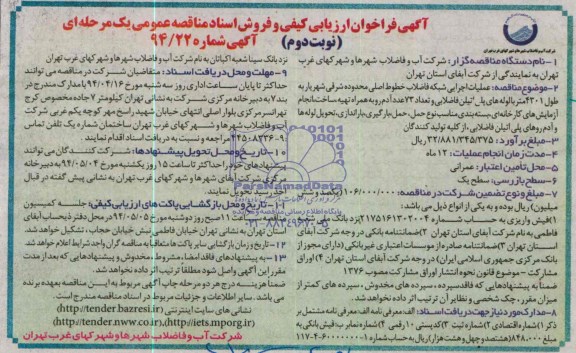 آگهی فراخوان ارزیابی کیفی و فروش اسناد مناقصه عمومی یک مرحله ای
(نوبت دوم) آگهی شماره ۹۴/۲۲
شرکت آب و فاضلاب شهرها و شهرکهای غرب تهران
۱- نام دستگاه مناقصه گزار: شرکت آب و فاضلاب شهرها و شهرکهای غرب
تهران به نمایندگی از شرکت آبفای استان تهران
۲- موضوع مناقصه: عملیات اجرایی شبکه فاضلاب خطوط اصلی محدوده شرقی شهریار به
طول ۴۲۰۱ متر با لوله های پلی اتیلن فاضلابی و تعداد ۷۳ عدد آدم رو به همراه تهیه ساخت انجام
آزمایش های کارخانه ای، بسته بندی مناسب نوع حمل، حمل، بارگیری، باراندازی، تحویل لوله ها
و آدم روهای پلی اتیلن فاضلابی، از کلیه تولید کنندگان
۳- مبلغ برآورد: ۳۲/۸۸۱/۳۴۵/۳۷۵ ریال
۴- مدت زمان انجام عملیات: ۱۲ ماه
۵- محل تامین اعتبار: عمرانی
۶- سطح بازرسی: سطح یک
۷- مبلغ و نوع تضمین شرکت در مناقصه: ۱۰۶/۰۰۰/۰۰۰
میلیون) ریال بوده و به یکی از انواع ذیل می باشد:
۱) فیش واریزی به حساب شماره ۲۱۷۵۱۶۱۳۰۲۰۰۴ نزد بانک ملی شعبه
فاطمی به نام شرکت آبفای استان تهران ۲) ضمانتنامه بانکی در وجه شرکت آبفای
استان تهران ۳) ضمانتنامه صادره از موسسات اعتباری غیربانکی (دارای مجوز از
بانک مرکزی جمهوری اسلامی ایران) در وجه شرکت آبفای استان تهران ۴) اوراق
مشارکت - موضوع قانون نحوه انتشار اوراق مشارکت مصوب ۱۳۷۶
ضمناً به پیشنهادهایی که فاقد سپرده، سپرده های مخدوش، سپرده های کمتر از
میزان مقرر، چک شخصی و نظایر آن ترتیب اثر داده نخواهد شد.
۸- مدارک مورد نیاز جهت دریافت اسناد: الف معرفی نامه الف معرفی نامه مشتمل بر
ذکر ۱) شماره اقتصادی ۲) شماره ثبت ۳) کدپستی ۱۰ رقمی ۴) شماره نمابر ب- فیش بانکی به
مبلغ ۸۴۸۰۰۰ (هشتصد و چهل و هشت هزار) ریال به حساب ۱۱۷-۴-۶۰۰۰۰۰۰-۱
نزد بانک سینا شعبه اکباتان به نام شرکت آب و فاضلاب شهرها و شهرکهای غرب تهران
۹- مهلت و محل دریافت اسناد: متقاضیان شرکت در مناقصه می توانند
حداکثر تا پایان ساعت اداری روز سه شنبه مورخ ۹۴/۰۴/۱۶ با مدارک مندرج در
بند ۷ به دبیرخانه مرکزی شرکت به نشانی تهران کیلومتر ۷ جاده مخصوص کرج
تهرانسر مرکزی بلوار اصلی انتهای خیابان شهید راسخ مهر کوچه یکم غربی شرکت
آب و فاضلاب شهرها و شهرکهای غرب تهران ساختمان شماره یک تلفن تماس
۹-۴۴۵۰۸۳۳۶ مراجعه و نسبت به دریافت اسناد اقدام نمایند.
۱۰- تاریخ و محل تحویل پیشنهادها: شرکت کنندگان می توانند
پیشنهادهای خود را حداکثر تا ساعت ۱۵ روز یکشنبه مورخ ۹۴/۰۵/۰۴ به دبیرخانه
مرکزی شرکت آبفای شهرها و شهرکهای غرب تهران به نشانی پیش گفته در قبال
اخذ رسید تسلیم نمایند.
۱۱- تاریخ و محل بازگشایی پاکت های ارزیابی کیفی: جلسه کمیسیون
مناقصه ساعت ۱۱ صبح روز دوشنبه مورخ ۹۴/۰۵/۰۵ در محل دفتر ذیحساب آبفای
استان تهران به نشانی تهران خیابان فاطمی نبش خیابان حجاب، تشکیل خواهد شد.
۱۲- تاریخ و زمان بازگشایی سایر پاکت ها متعاقباً به مناقصه گران واجد شرایط اعلام خواهد شد.
۱۳- به پیشنهادهای فاقد امضا، مشروط، مخدوش و پیشنهادهایی که بعد از مدت
مقرر این آگهی واصل شود مطلقا ترتیب اثر داده نخواهد شد.
ضمناً هزینه درج هر دو مرحله چاپ آگهی مربوط به این مناقصه به عهده برنده
می باشد. سایر اطلاعات و جزئیات مربوط در اسناد مناقصه مندرج است.
نشانی های سایت اینترنتی (http://tender.bazresi.ir)
(http://tender.nww.co.ir),(http://iets.mporg.ir)
شرکت آب و فاضلاب شهرها و شهرکهای غرب تهران
ParsNamadData
پایگاه اطلاع رسانی مناقصه و مزایده